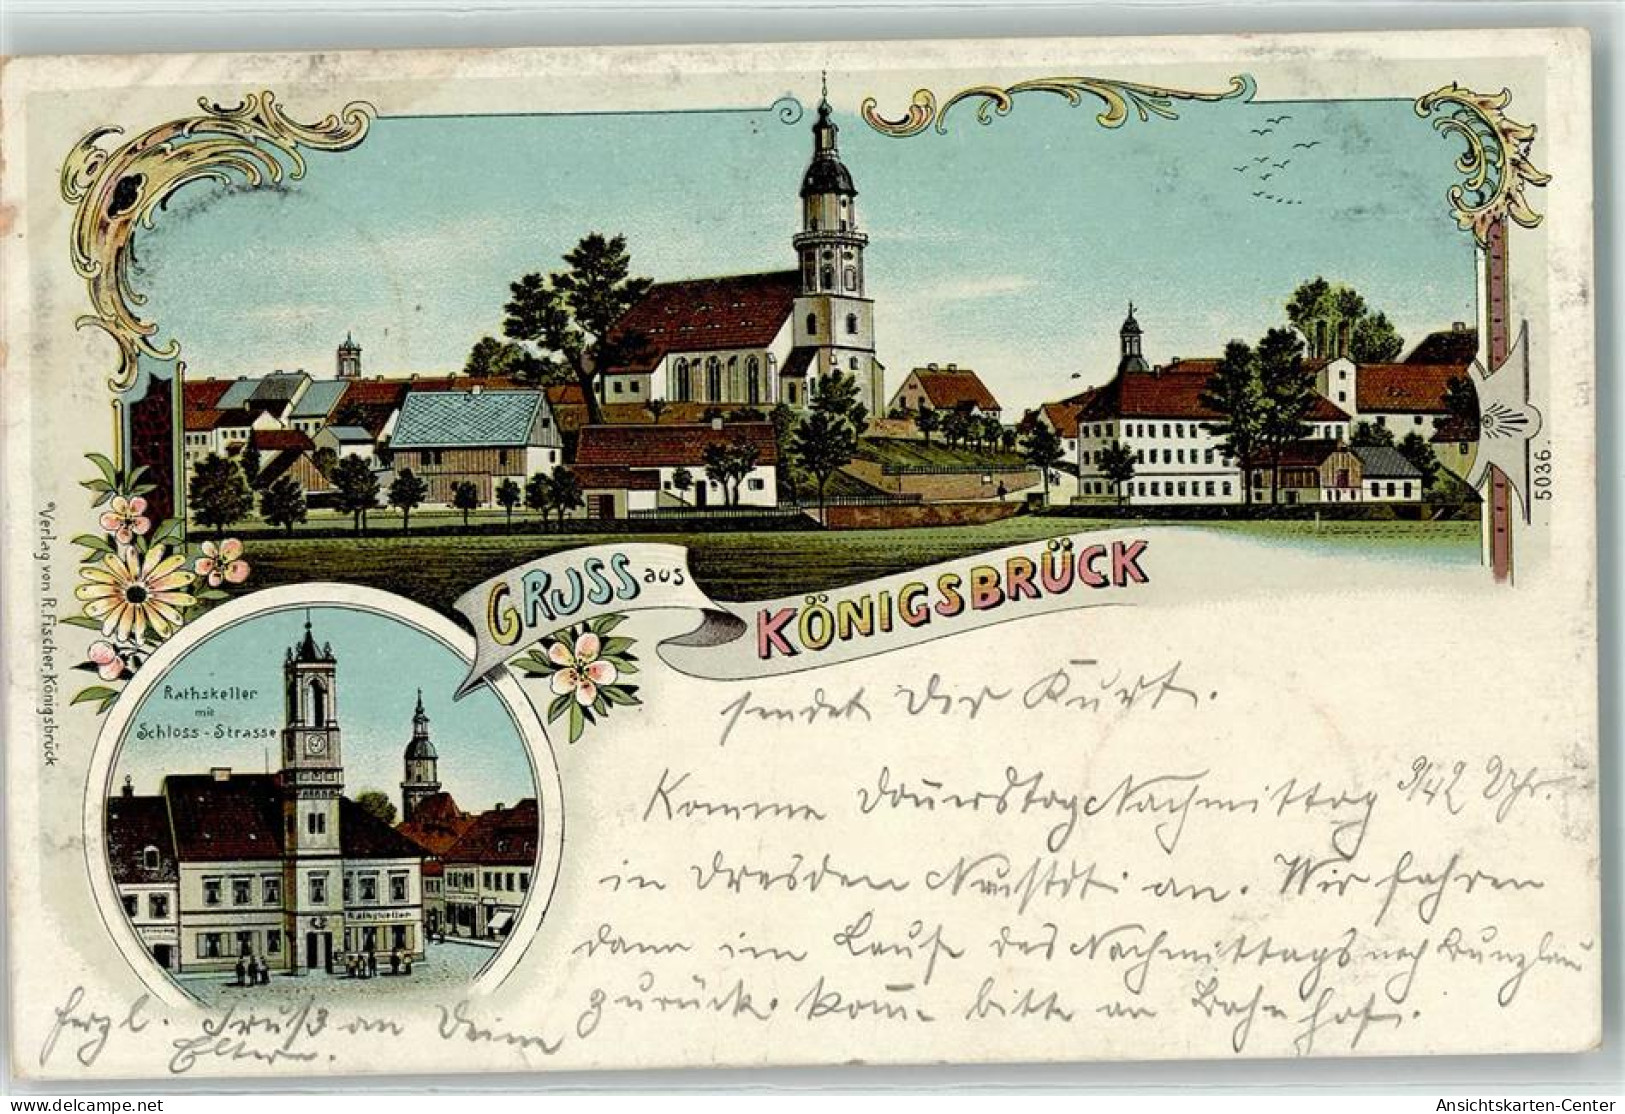 GRUSS aus KÖNIGSBRÜCK
Rathskeller
mit
Schloss-Strasse
Rathskeller
Verlag von R. Fischer, Königsbrück.
5036.
sendet Dir Kurt.
Komme Donnerstag Nachmittag 3/42 Uhr.
in Dresden Neustdt. an. Wir fahren
dann im Laufe des Nachmittags nach Bunzlau
zurück. Komme bitte an Bahnhof.
herzl. Gruß an Deine
Eltern.
delcampe.net
Ansichtskarten-Center